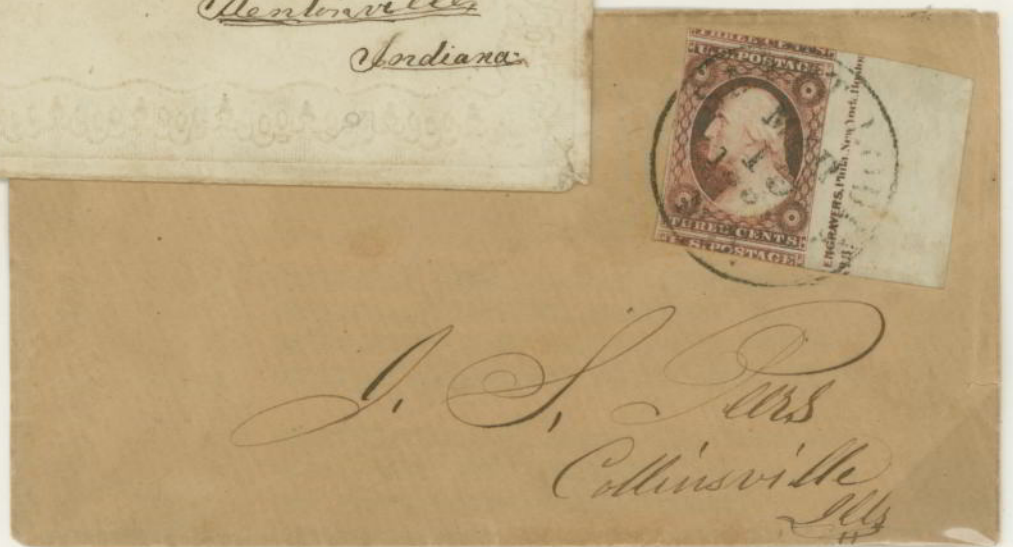 Bentonville,
Indiana.
THREE CENTS
U.S. POSTAGE
THREE CENTS
U.S. POSTAGE
ENGRAVERS, Phila New York, Boston
J. S. Peers
Collinsville
Ills